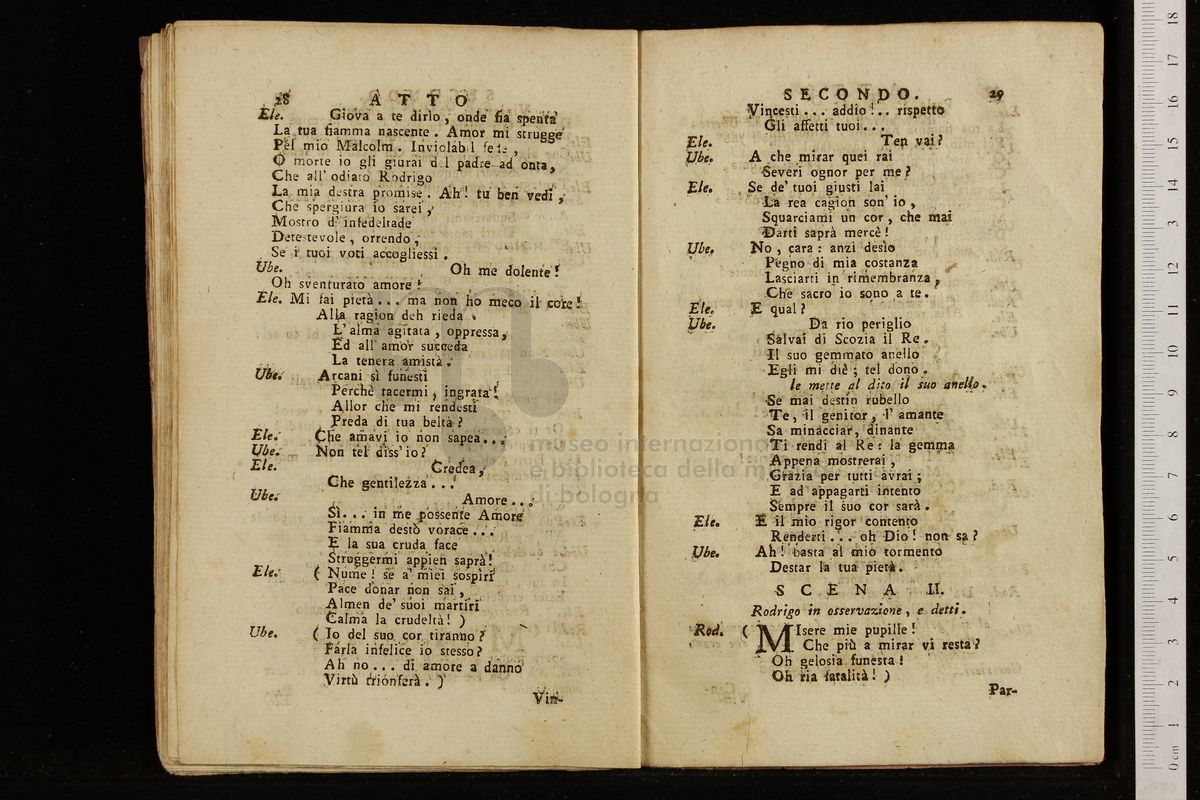 28 ATTO
Ele. Giova a te dirlo, onde sia spenta
La tua fiamma nascente. Amor mi strugge
Pel mio Malcolm. Inviolabil fede,
O morte io gli giurai del padre ad onta,
Che all' odiato Rodrigo
La mia destra promise. Ah! tu ben vedi,
Che spergiura io sarei,
Mostro d' infedeltade
Detestevole, orrendo,
Se i tuoi voti accogliessi.
Ube. Oh me dolente!
Oh sventurato amore!
Ele. Mi fai pietà... ma non ho meco il core!
Alla ragion deh rieda
L' alma agitata, oppressa,
Ed all' amor succeda
La tenera amistà.
Ube. Arcani sì funesti
Perchè tacermi, ingrata!
Allor che mi rendesti
Preda di tua beltà?
Ele. Che amavi io non sapea...
Ube. Non tel diss' io?
Ele. Credea,
Che gentilezza...
Ube. Amore...
Sì... in me possente Amore
Fiamma destò vorace...
E la sua cruda face
Struggermi appien saprà!
Ele. ( Nume! se a' miei sospiri
Pace donar non sai,
Almen de' suoi martiri
Calma la crudeltà! )
Ube. ( Io del suo cor tiranno?
Farla infelice io stesso?
Ah no... di amore a danno
Virtù trionferà. )
Vin-
SECONDO. 29
Vincesti... addio!.. rispetto
Gli affetti tuoi...
Ele. Ten vai?
Ube. A che mirar quei rai
Severi ognor per me?
Ele. Se de' tuoi giusti lai
La rea cagion son' io,
Squarciami un cor, che mai
Darti saprà mercè!
Ube. No, cara: anzi desìo
Pegno di mia costanza
Lasciarti in rimembranza,
Che sacro io sono a te.
Ele. E qual?
Ube. Da rio periglio
Salvai di Scozia il Re.
Il suo gemmato anello
Egli mi diè; tel dono.
le mette al dito il suo anello.
Se mai destin rubello
Te, il genitor, l' amante
Sa minacciar, dinante
Ti rendi al Re: la gemma
Appena mostrerai,
Grazia per tutti avrai;
E ad appagarti intento
Sempre il suo cor sarà.
Ele. E il mio rigor contento
Renderti... oh Dio! non sa?
Ube. Ah! basta al mio tormento
Destar la tua pietà.
SCENA II.
Rodrigo in osservazione, e detti.
Rod. ( MIsere mie pupille!
Che più a mirar vi resta?
Oh gelosia funesta!
Oh ria fatalità! )
Par-
museo internazionale
e biblioteca della m
di bologna
0 cm 1 2 3 4 5 6 7 8 9 10 11 12 13 14 15 16 17 18